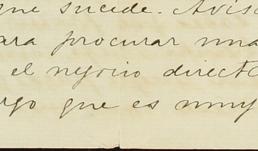 que sucede. Avisa
para procurar una
el negocio directo
rgo que es muy